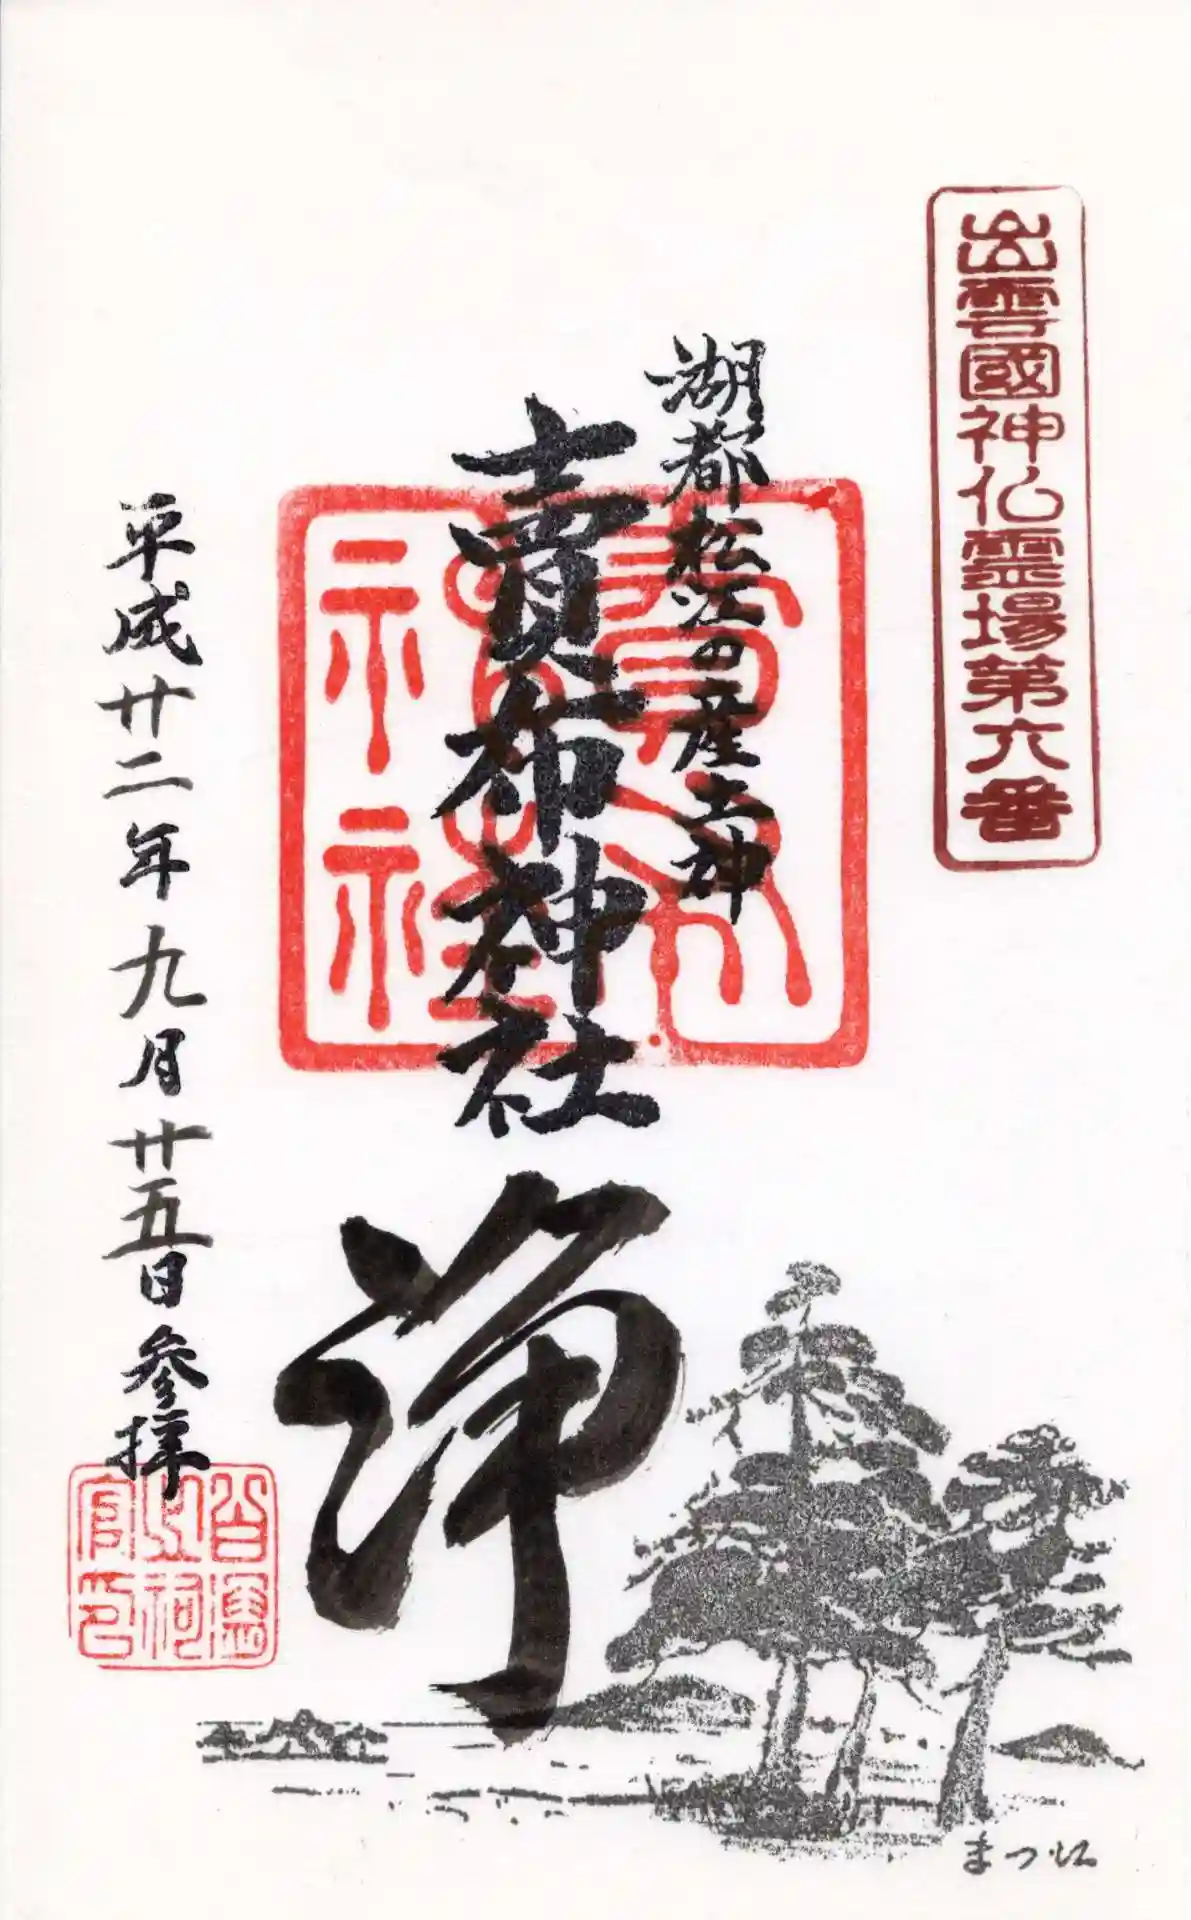 出雲國神仏霊場第六番
湖都松江の産土神
賣布神社
浄
平成廿二年九月廿五日参拝
賣布神社
まつ江